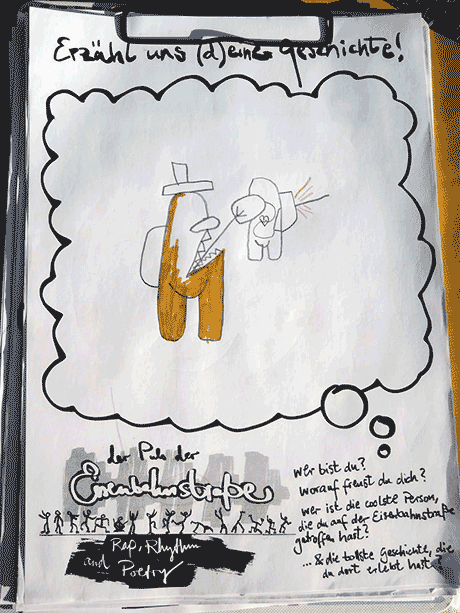 Erzähl uns (d)eine Geschichte!
der Puls der
Eisenbahnstraße
Rap, Rhythm
and Poetry
wer bist du?
Worauf freust du dich?
wer ist die coolste Person,
die du auf der Eisenbahnstraße
getroffen hast?
... & die tollste Geschichte, die
du dort erlebt hast?